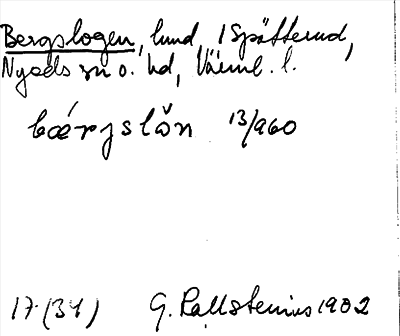 Bergslogen, lund, i Spätterud,
Nyeds sn o. hd, Värml. l.
bǽrjslǒn 13/960
17 (34) G. Kallstenius 1902